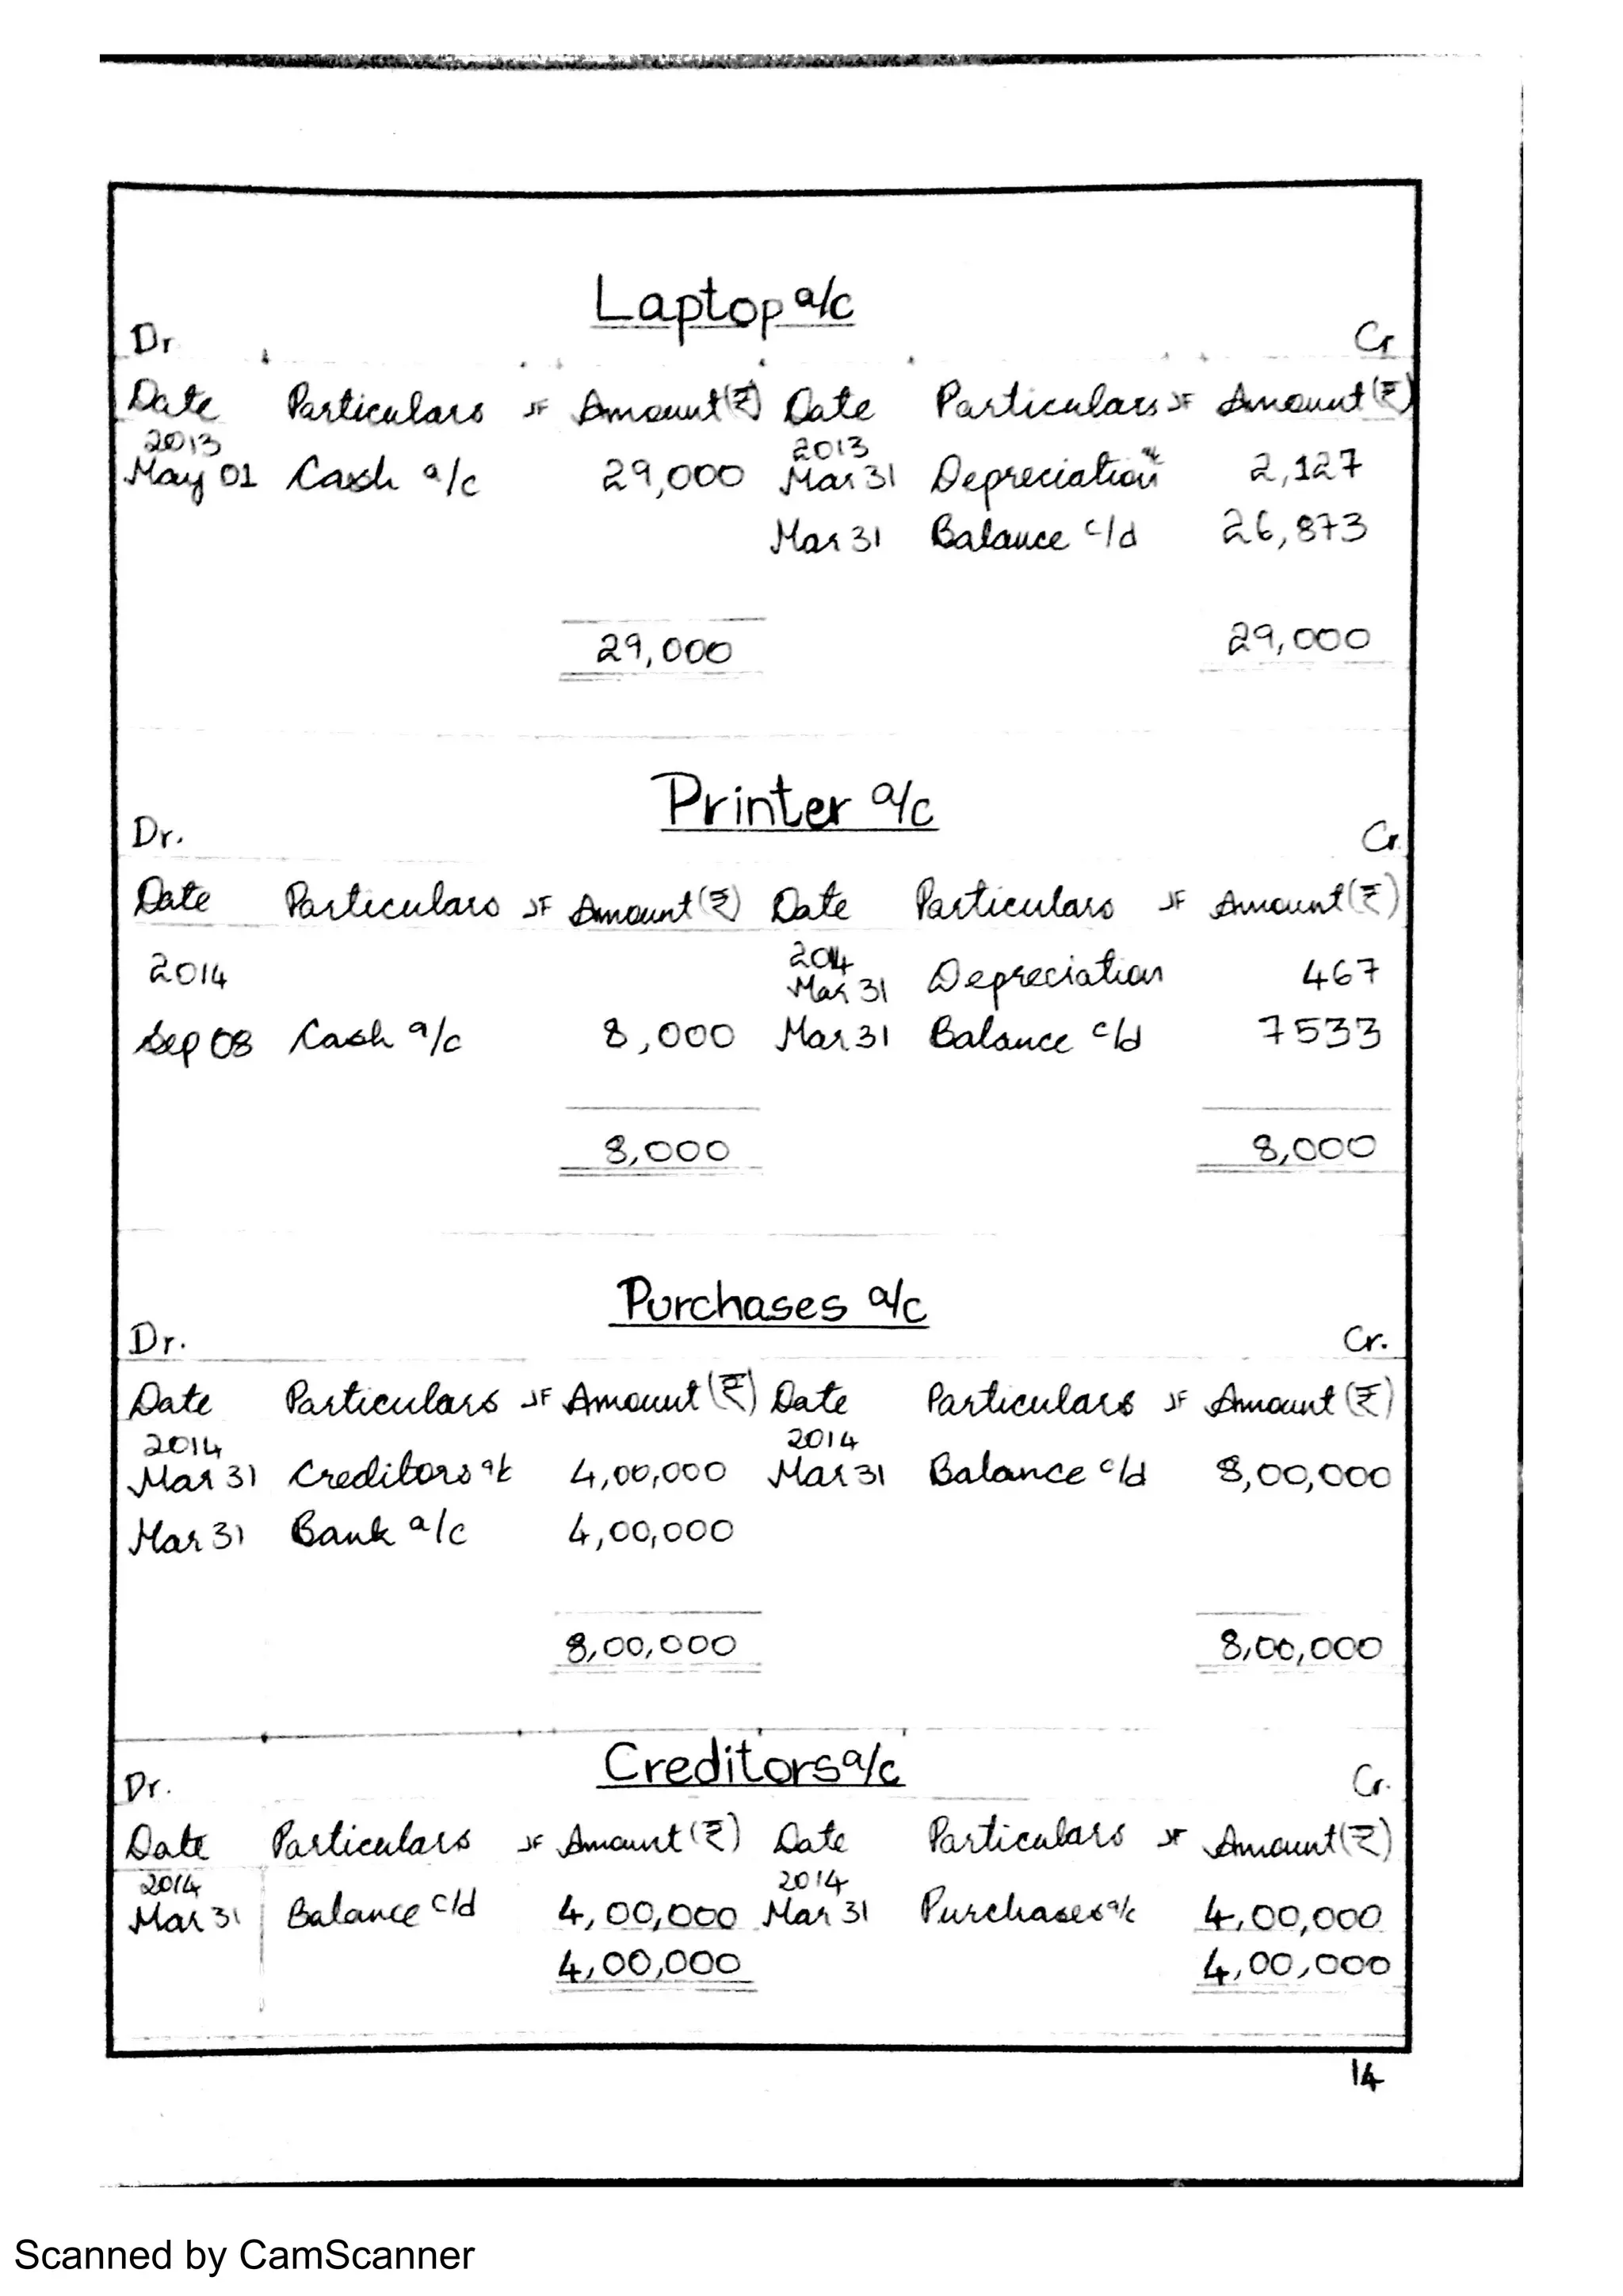 Laptop a/c
Dr Cr
Date Particulars JF Amount(₹) Date Particulars JF Amount(₹)
2013 2013
May 01 Cash a/c 29,000 Mar 31 Depreciation 2,127
Mar 31 Balance c/d 26,873
29,000 29,000
Printer a/c
Dr. Cr.
Date Particulars JF Amount(₹) Date Particulars JF Amount(₹)
2014 2014
Mar 31 Depreciation 467
Sep 08 Cash a/c 8,000 Mar 31 Balance c/d 7533
8,000 8,000
Purchases a/c
Dr. Cr.
Date Particulars JF Amount(₹) Date Particulars JF Amount(₹)
2014 2014
Mar 31 Creditors a/c 4,00,000 Mar 31 Balance c/d 8,00,000
Mar 31 Bank a/c 4,00,000
8,00,000 8,00,000
Creditors a/c
Dr. Cr.
Date Particulars JF Amount(₹) Date Particulars JF Amount(₹)
2014 2014
Mar 31 Balance c/d 4,00,000 Mar 31 Purchases a/c 4,00,000
4,00,000 4,00,000
14
Scanned by CamScanner